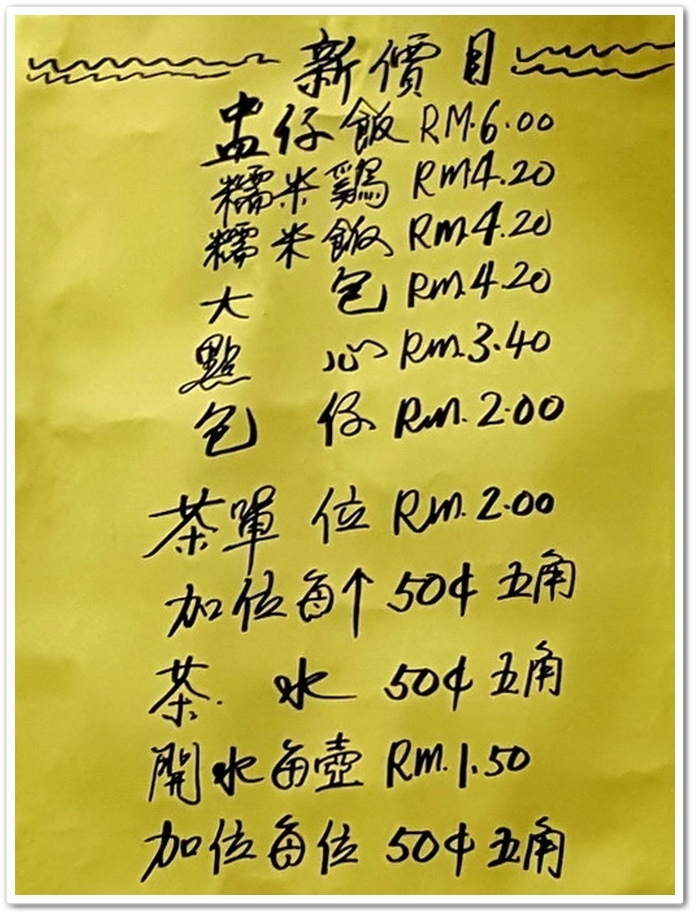 新價目
盅仔飯 RM.6.00
糯米鷄 RM4.20
糯米飯 RM.4.20
大包 RM.4.20
點心 RM.3.40
包仔 RM.2.00
茶單位 RM.2.00
加位每个 50¢ 五角
茶.水 50¢ 五角
開水每壺 RM.1.50
加位每位 50¢ 五角